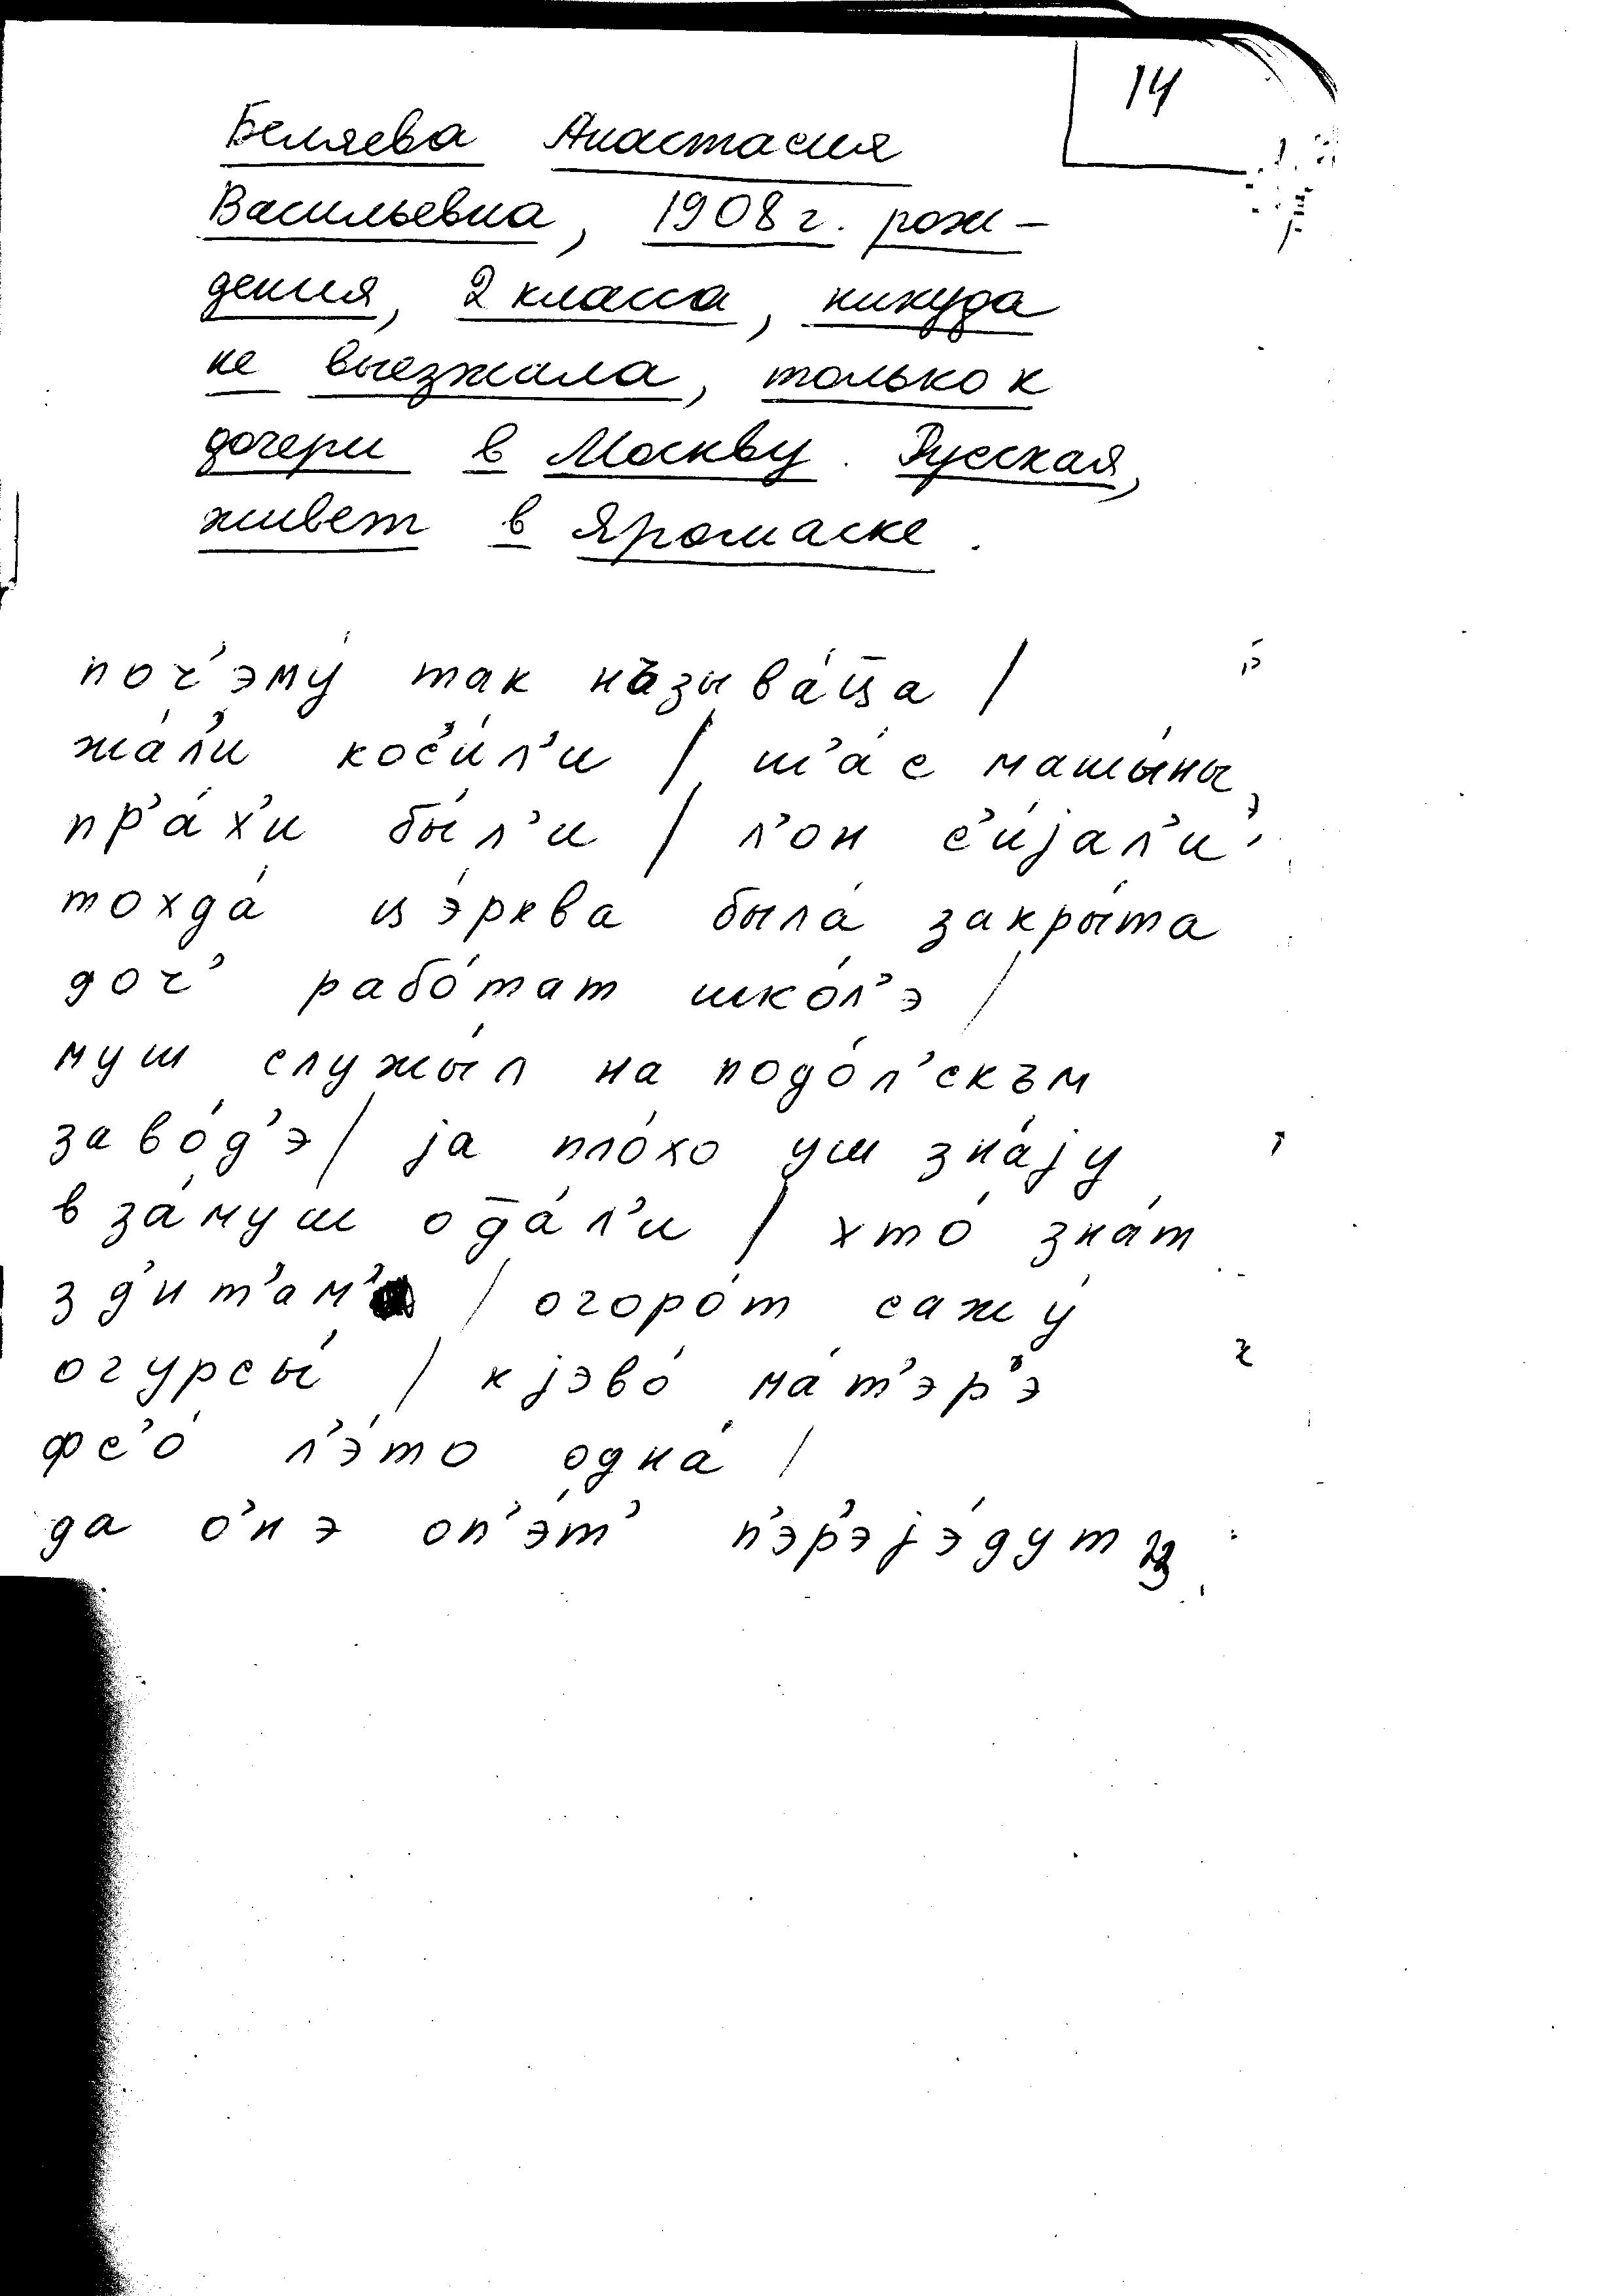 14
Беляева Анастасия
Васильевна, 1908 г. рож-
дения, 2 класса, никуда
не выезжала, только к
дочери в Москву. Русская,
живет в Яромаске.
поч’эму́ так нъзыва́ц̄а /
жа́л’и кос’и́л’и / ш’а́с машы́ны
пр’а́х’и бы́л’и / л’он с’и́јал’и
тохда́ цэ́рква была́ закры́та
доч’ рабо́тат шко́л’э /
муш служы́л на подо́л’скъм
заво́д’э / jа пло́хо уш зна́jу
в за́муш од̄а́л’и / хто́ зна́т
з д’ит’ам’ / огоро́т сажу́
огурсы́ / к jэво́ ма́т’эр’э
фс’о́ л’э́то одна́ /
да о’нэ оп’э́т’ п’эр’эjэ́дут